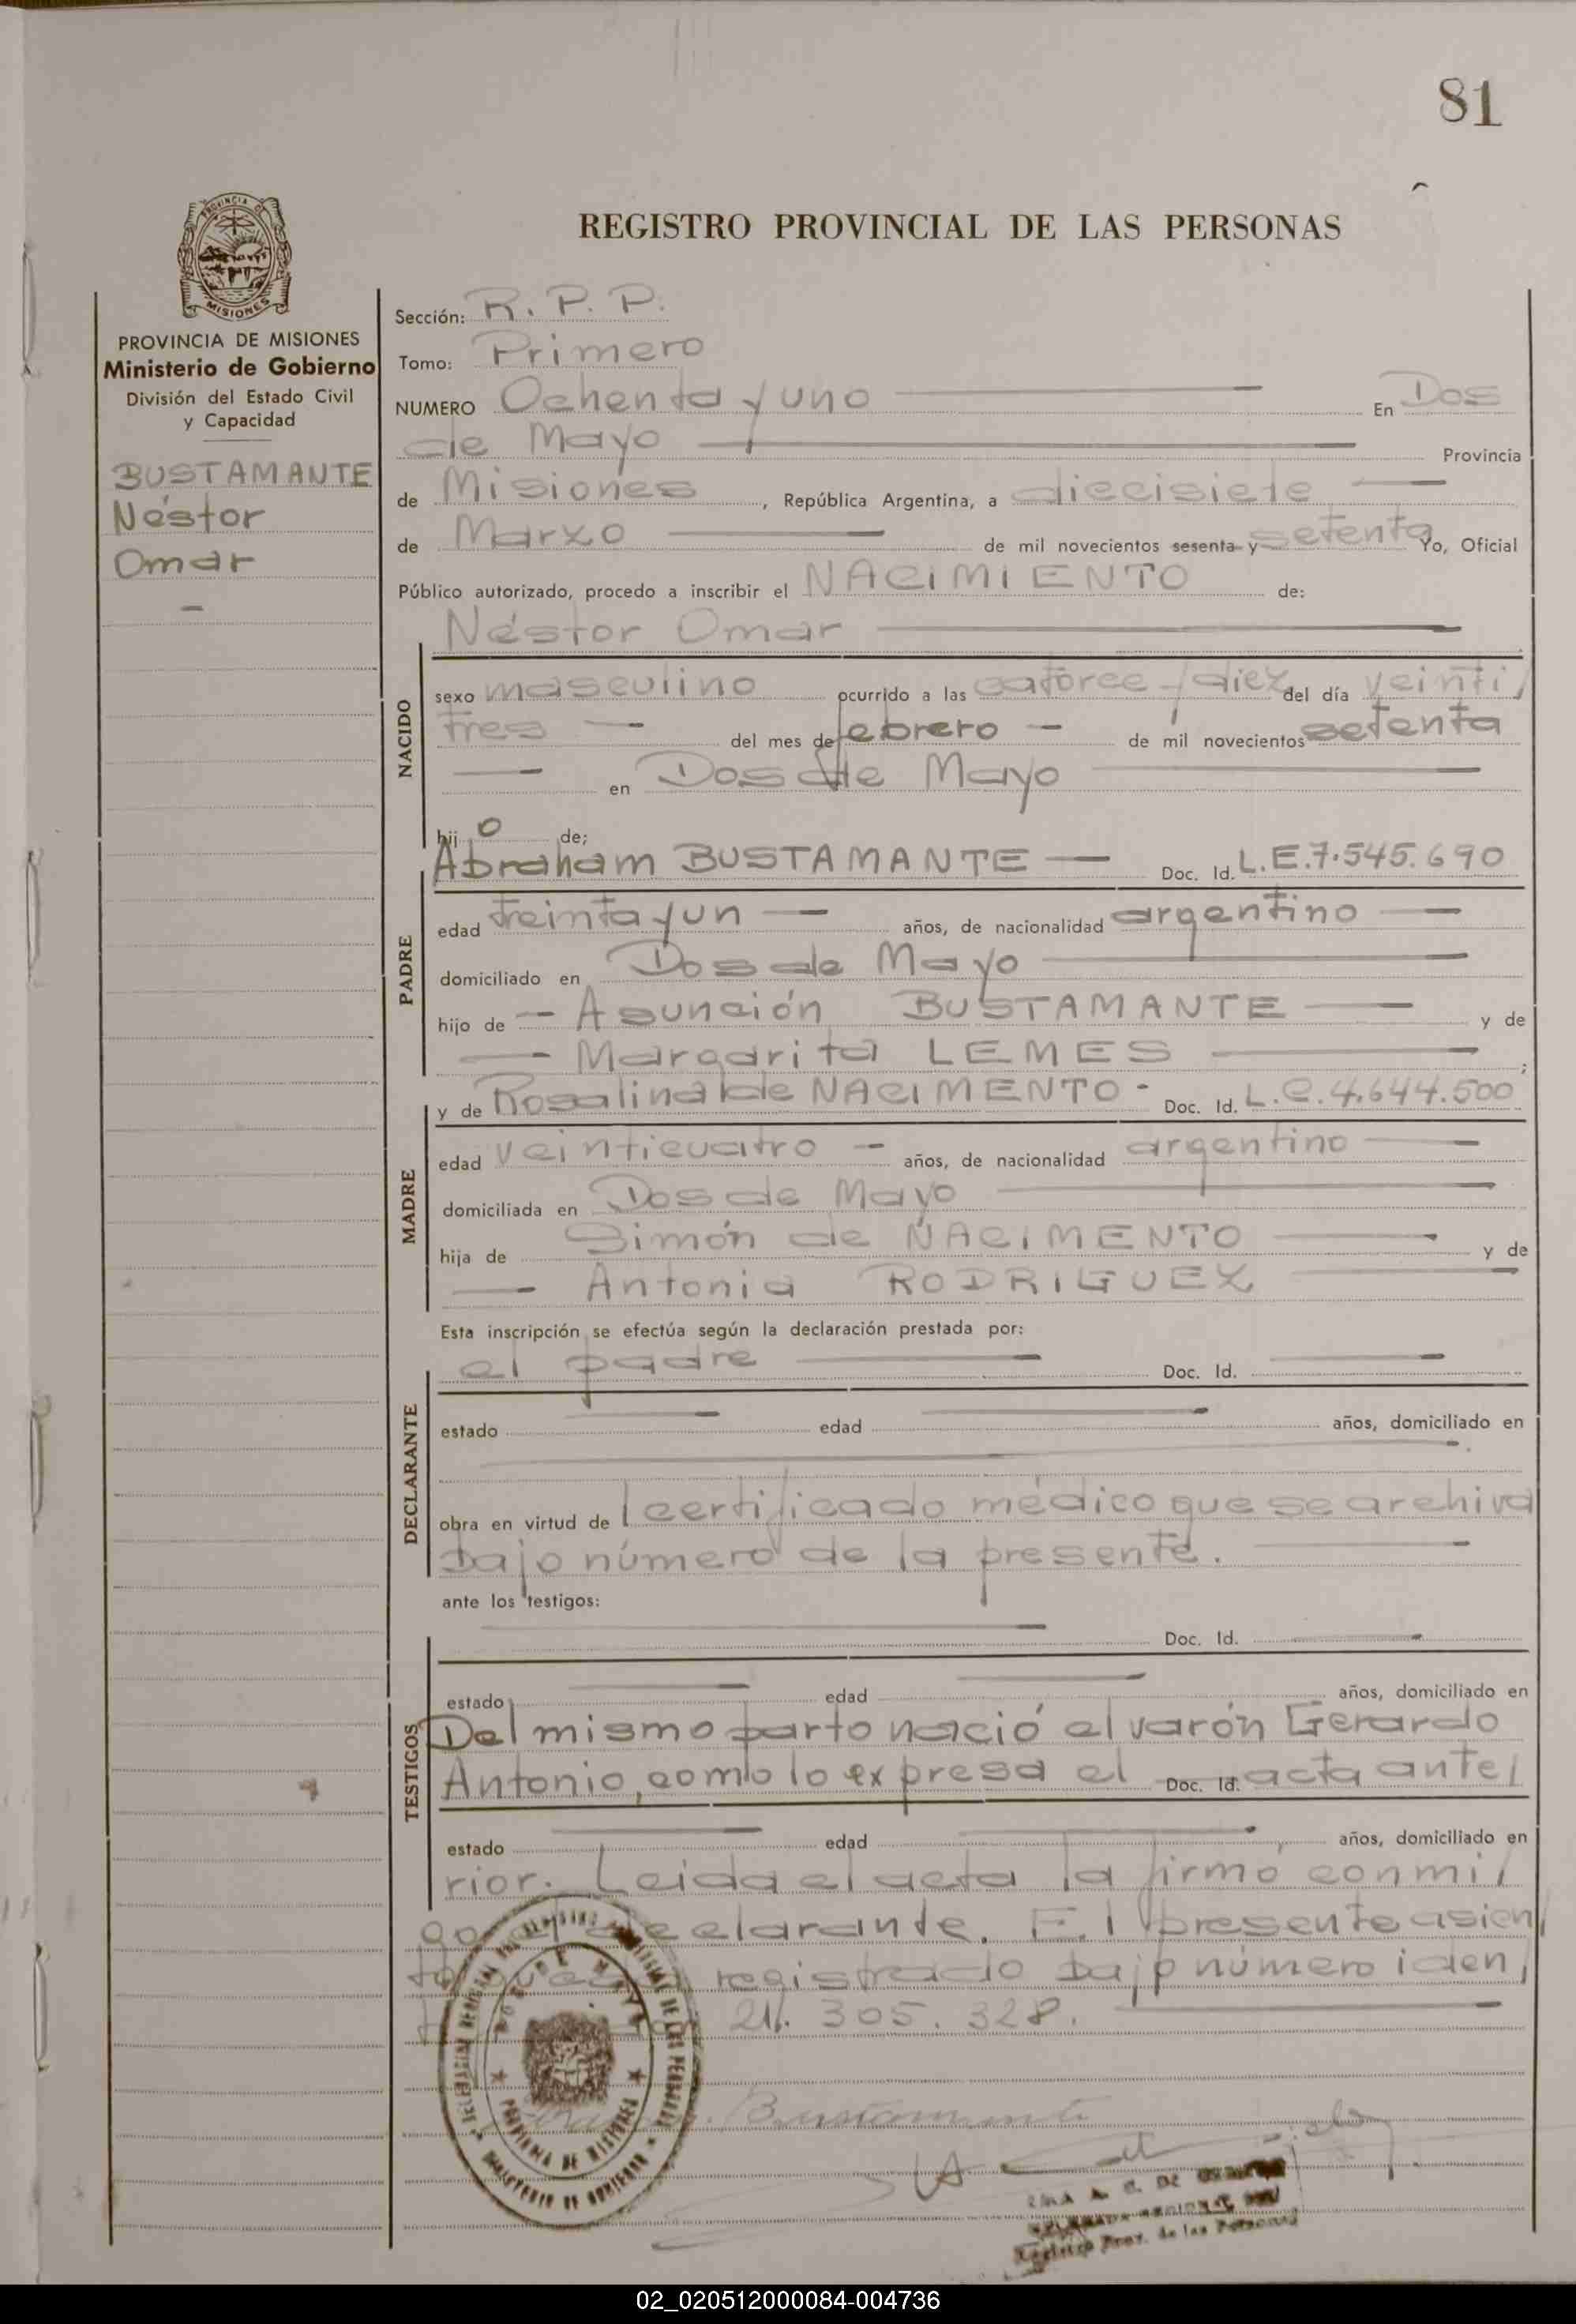 81
PROVINCIA DE
MISIONES
REGISTRO PROVINCIAL DE LAS PERSONAS
PROVINCIA DE MISIONES
Ministerio de Gobierno
División del Estado Civil
y Capacidad
BUSTAMANTE
Néstor
Omar
Sección: R. P. P.
Tomo: Primero
NUMERO Ochenta y uno En Dos
de Mayo Provincia
de Misiones, República Argentina, a diecisiete
de Marzo de mil novecientos sesenta y setenta Yo, Oficial
Público autorizado, procedo a inscribir el NACIMIENTO de:
Néstor Omar
NACIDO
sexo masculino ocurrido a las catorce y diez del día veinti/
tres del mes de febrero de mil novecientos setenta
en Dos de Mayo
hijo de;
PADRE
Abraham BUSTAMANTE Doc. Id. L.E.7.545.690
edad treinta y un años, de nacionalidad argentino
domiciliado en Dos de Mayo
hijo de Asunción BUSTAMANTE y de
Margarita LEMES ;
MADRE
y de Rosalina de NACIMENTO Doc. Id. L.C.4.644.500
edad veinticuatro años, de nacionalidad argentino
domiciliada en Dos de Mayo
hija de Simón de NACIMENTO y de
Antonia RODRIGUEZ
Esta inscripción se efectúa según la declaración prestada por:
DECLARANTE
el padre Doc. Id.
estado edad años, domiciliado en
obra en virtud de l certificado médico que se archiva
bajo número de la presente.
ante los testigos:
Doc. Id.
TESTIGOS
estado edad años, domiciliado en
Del mismo parto nació el varón Gerardo
Antonio, como lo expresa el Doc. Id. acta ante/
estado edad años, domiciliado en
rior. Leida el acta la firmó conmi/
go el declarante. El presente asien/
to registrado bajo número iden/
21. 305. 328.
DOS DE MAYO
PROVINCIA DE MISIONES
MINISTERIO DE GOBIERNO
Bustamante
Registro Prov. de las Personas
02_020512000084-004736